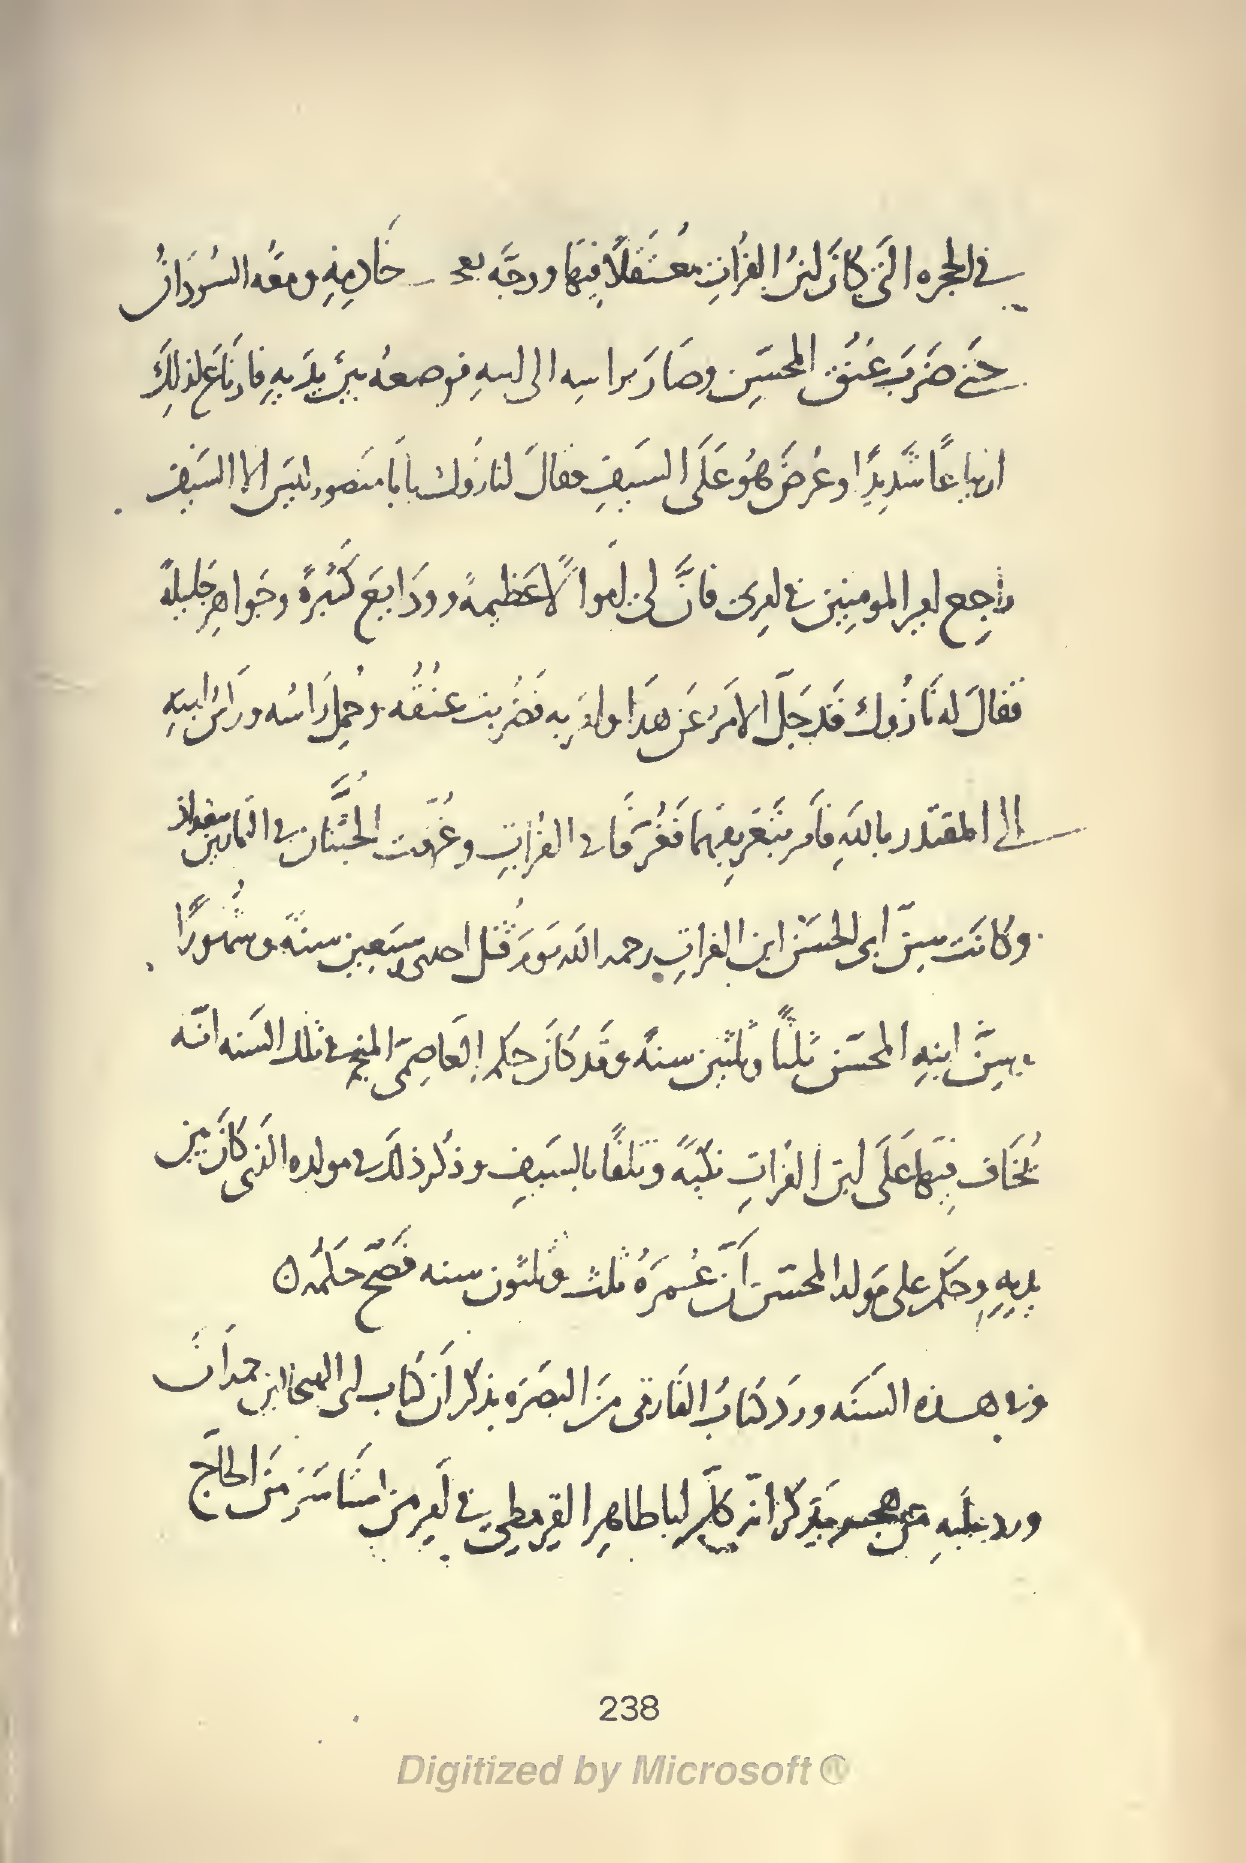 في الحجره التى كانَ ابنُ الفُراتِ معُتَقَلًا فيهَا ووجَّه بعـ ـض خَادمِيهِ ومعَه السُودَانُ
حتى ضَرَبَ عُنُقَ المحسَّنِ وصَارَ براسِه الى ابيهِ فوضعهُ بينَ يدَيهِ فارتَاعَ لذلِكَ
ارتياعًا شَّدِيدًا وعُرِضَ هُوَ عَلَى السَيفِ فقالَ لنازُوك يابَا منَصور ليَس الا السَيف
راجع امير المومنِينَ في امرى فانَّ لى امَوالًا عَظيمةً وودَايعَ كَثيرةً وجَواهِر جَليلةً
فقالَ له نَازُوك قَد جَلَّ الامَرُ عَن هذَا وامَر بِه فَضُرِبت عنُقُه وحُمِلَ رَاسُه ورَاسُ ابنِهِ
الى المقتَدر باللهِ فاَمر بتَغريقهِما فَغُرِّقَا في الفُراتِ وغُرّقت الجُثّتَان في التمارين ببغداذ
وكانَت سِنّ ابى الحسَن ابن الفراتِ رحمه الله يَومَ قُتل احدى وسَبعِين سنةً وشُهورًا
وسِنّ ابنِهِ المحسّن ثلثًا وثلثين سنةً وقَد كانَ حكم العَاصِمىّ المنجم في تلك السَنه انّه
يُخَاف فِيَها عَلَى ابن الفُراتِ نَكبَةً وتلفًا بالسَيفِ وذكُر ذلكَ في مولدِه الذى كانَ بين
يديهِ وحكَم على مَولد المحسّن اَنّ عُمرَهُ ثلث وثلثون سنه فَصَحّ حكمُه ۞
وفى هذه السَنَه وردَ كتابُ الفَارقى منَ البصَرَه يذكُر اَنّ كتاب ابى الهيجا ابن حمدَان
ورد عليهِ من هجر يَذكُر انّه كلّم ابا طاهِر القِرمطِى في اَمرِ من استَاسَر منَ الحَاجّ
238
Digitized by Microsoft ®